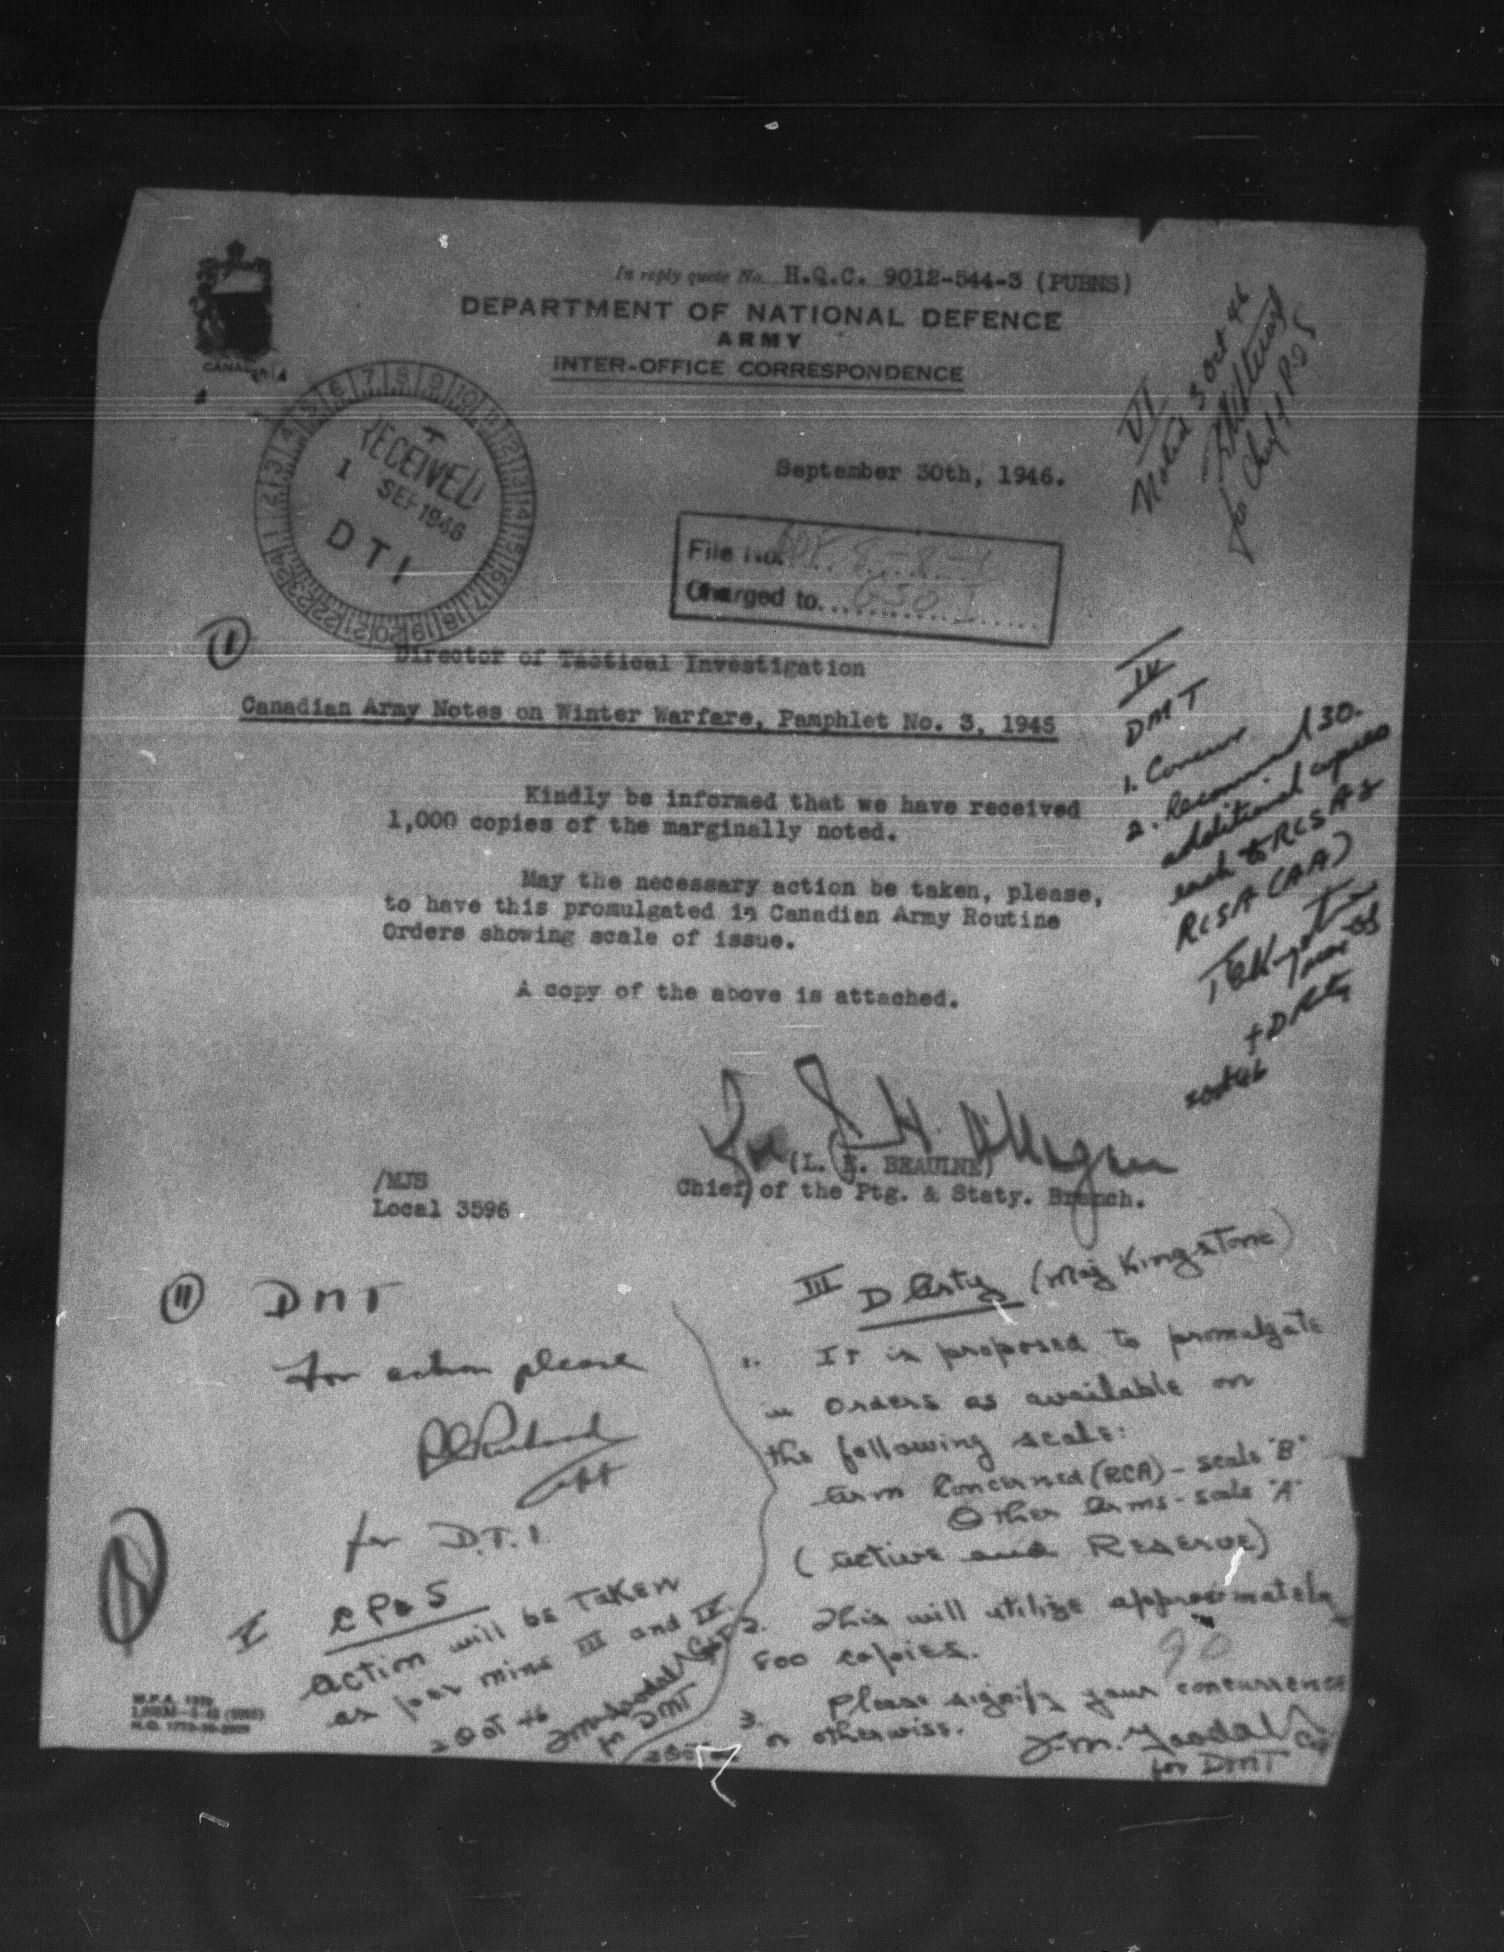 In reply quote No. H.Q.C. 9012-544-3 (PUBNS)
DEPARTMENT OF NATIONAL DEFENCE
ARMY
INTER-OFFICE CORRESPONDENCE
CANADA
RECEIVED
1 SEP 1946
DTI
September 30th, 1946.
File No.
Charged to.
VI
Noted 3 Oct 46
for Chief P.& S
I
Director of Tactical Investigation
Canadian Army Notes on Winter Warfare, Pamphlet No. 3, 1945
Kindly be informed that we have received
1,000 copies of the marginally noted.
May the necessary action be taken, please,
to have this promulgated in Canadian Army Routine
Orders showing scale of issue.
A copy of the above is attached.
for
(L. E. BEAULNE)
Chief of the Ptg. & Staty. Branch.
/MJS
Local 3596
IV
DMT
1. Concur
2. Recommend 30
additional copies
each to RCSA &
RCSA (AA)
f D Arty
2 Oct 46
II DMT
for action please
for D.T.I.
III D Arty (Maj Kingstone)
1. It is proposed to promulgate
in orders as available on
the following scale:
Arm Concerned (RCA) - scale "B"
Other Arms - scale "A"
(active and Reserve)
2. This will utilize approximately
800 copies.
90
3. Please signify your concurrence
or otherwise.
for DMT
V CP&S
Action will be taken
as per mins III and IV.
2 Oct 46
for DMT